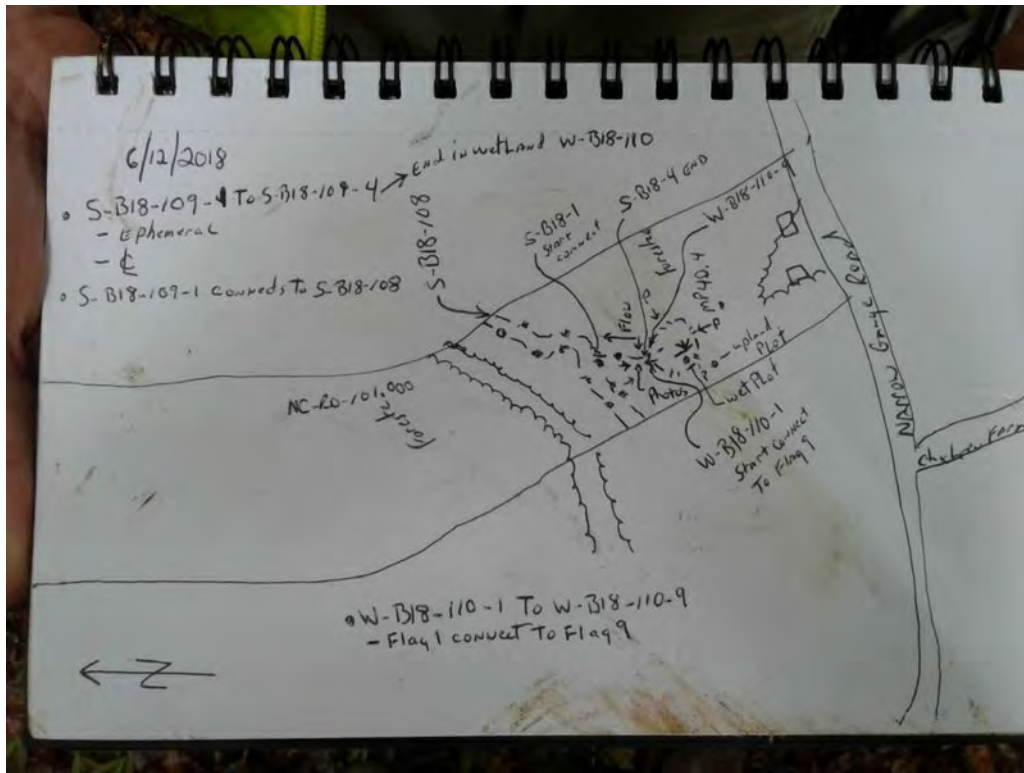 6/12/2018
• S-B18-109-1 To S-B18-109-4 → End in wetland W-B18-110
- Ephemeral
- ℄
• S-B18-109-1 connects To S-B18-108
S-B18-108
S-B18-1
Start
connect
S-B18-4 END
W-B18-110-9
Flow
P
P
P
upland
Plot
wet Plot
Photos
W-B18-110-1
Start connect
To Flag 9
NC-RO-101.000
Forested
Narrow Gauge Road
• W-B18-110-1 To W-B18-110-9
- Flag 1 connect To Flag 9
Z